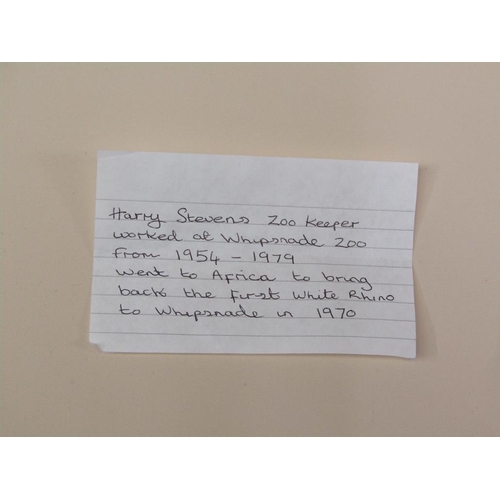 Harry Stevens Zoo Keeper
worked at Whipsnade Zoo
from 1954 - 1979
went to Africa to bring
back the first White Rhino
to Whipsnade in 1970